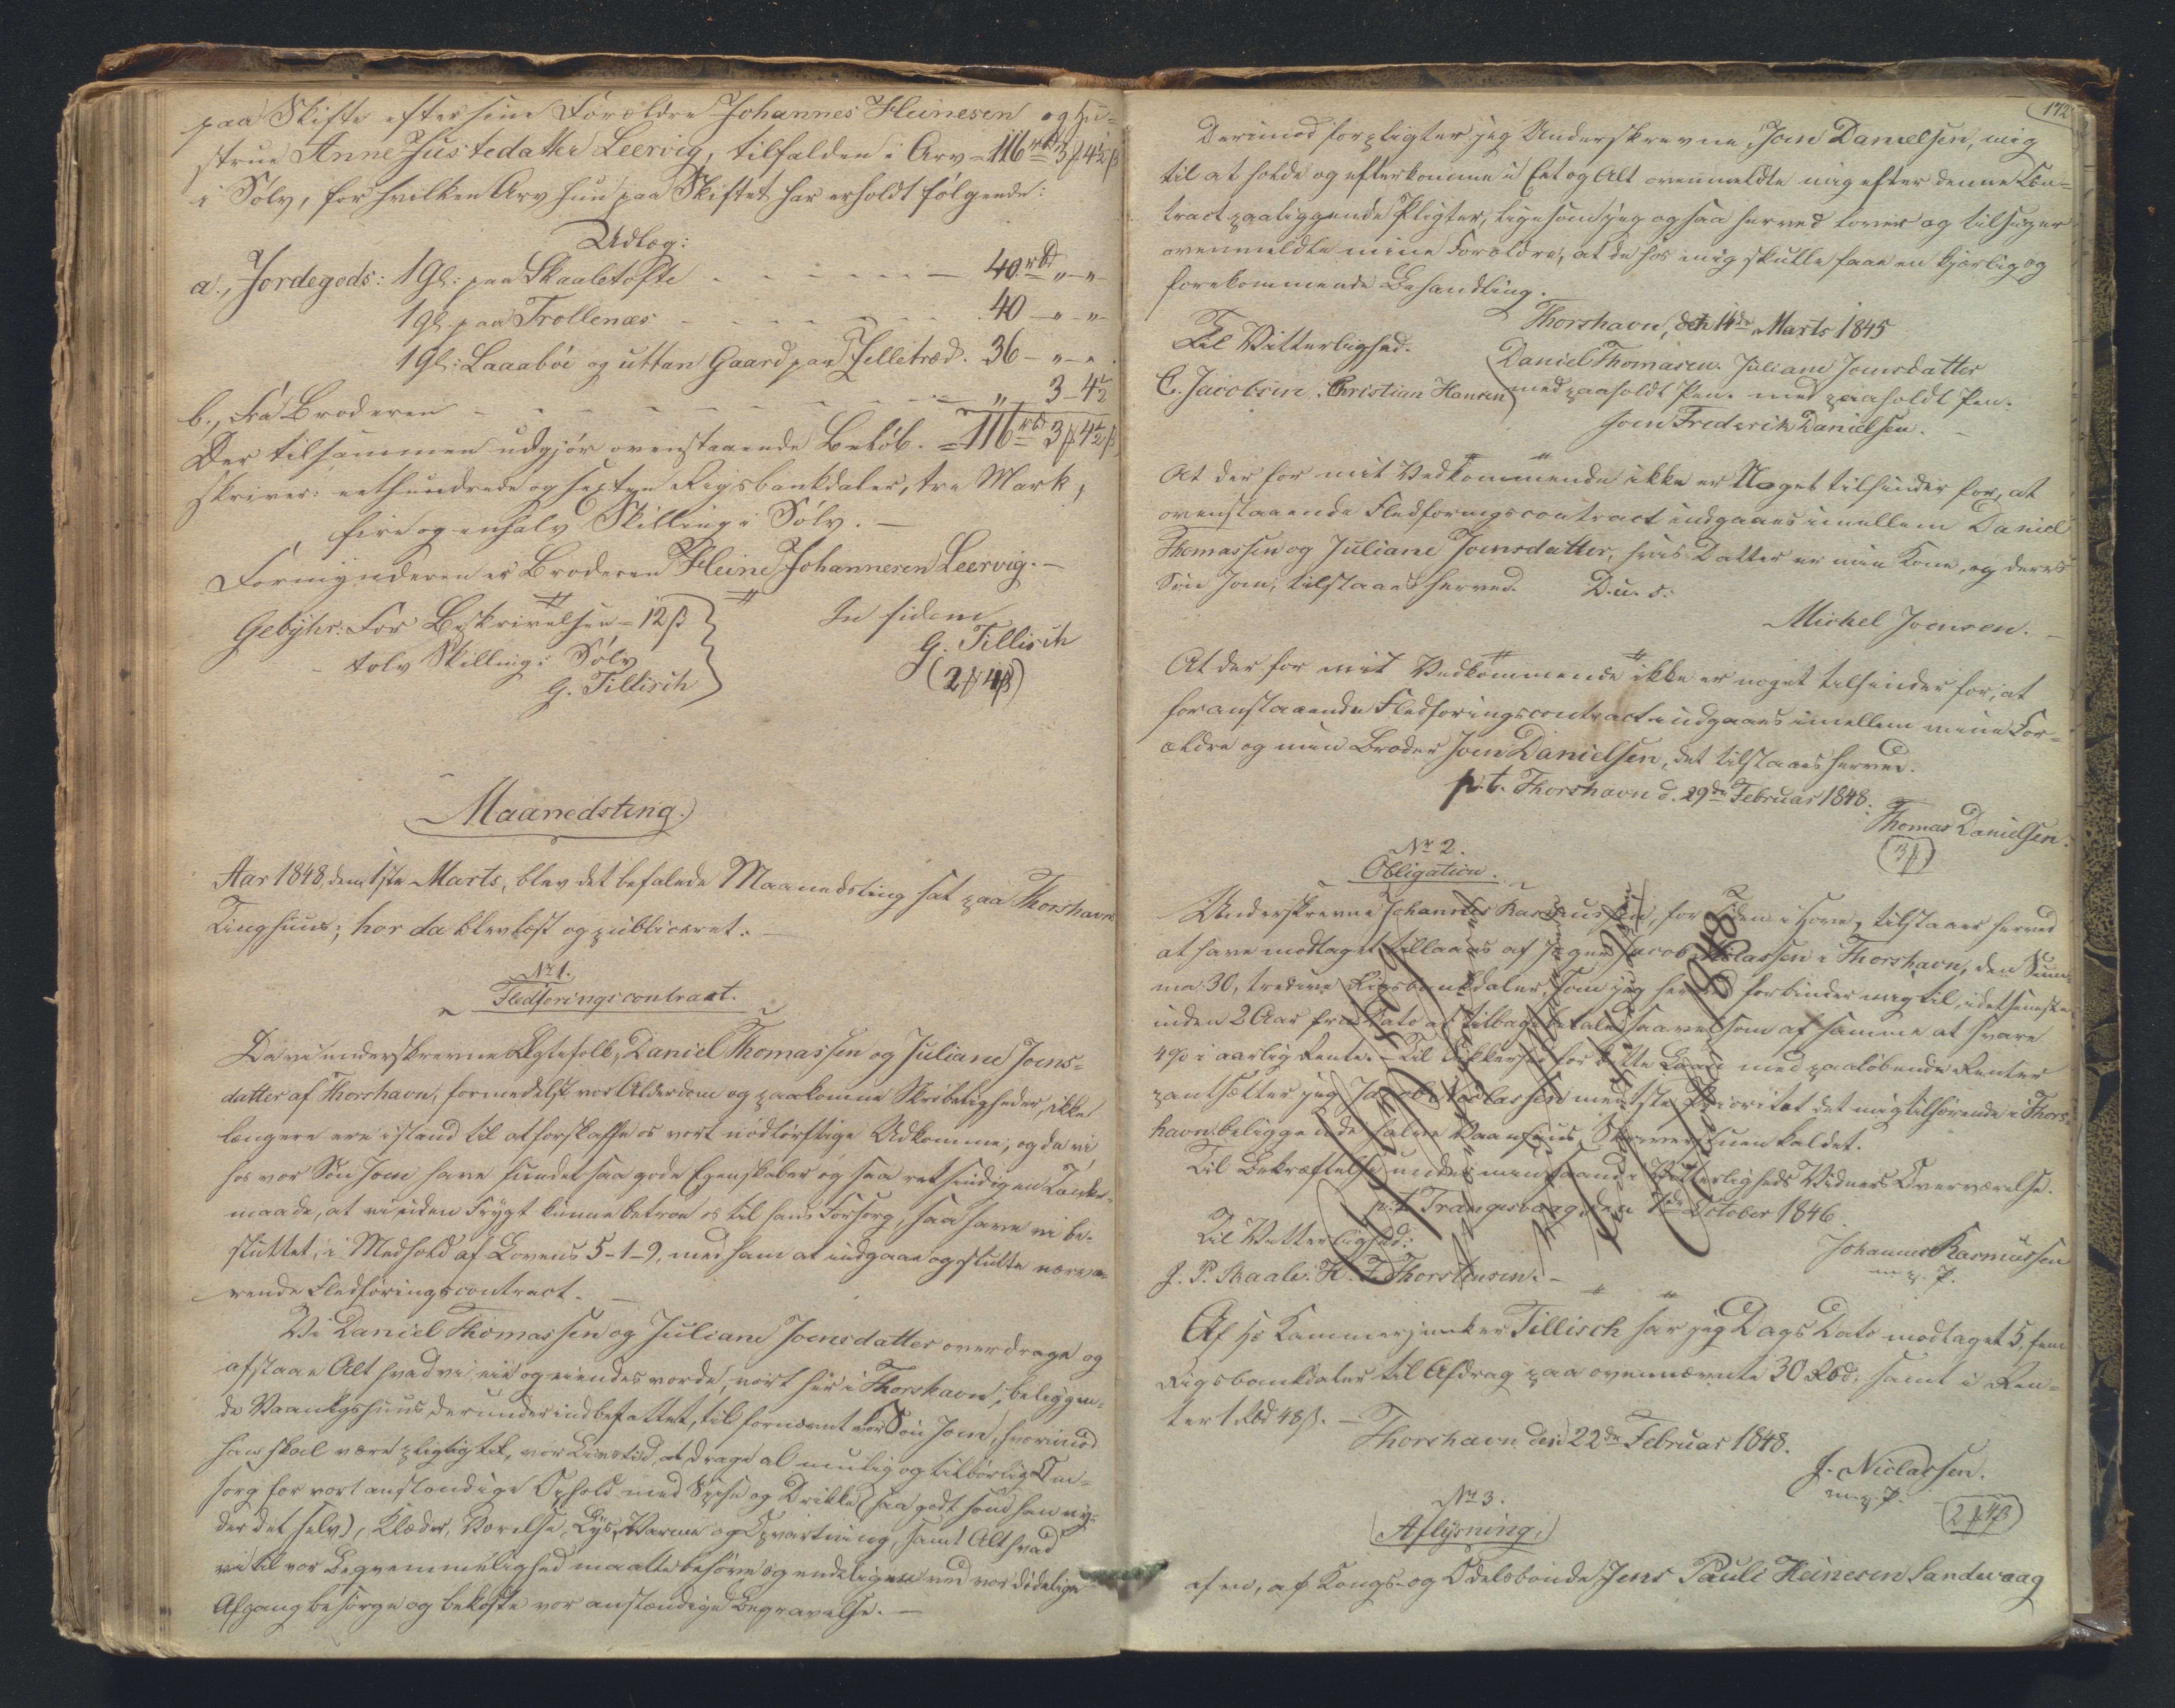 paa Skifte efter sine Forældre Johannes Heinesen og Hu-
strue Anne Justedatter Leervig, tilfalden i Arv = 116 rbd 3 ₻ 4½ ß
i Sølv, for hvilken Arv hun paa Skiftet har erholdt følgende:
Udlæg:
a., Jordegods: 1 Gl: paa Skaaletofte - - - - - - 40 rbd „ - „
1 Gl. paa Trollenæs - - - - - - 40 - „ - „
1 Gl: Laaabøe og utten Gaard paa Selletræd. 36 - „ - „
b., Fra Broderen - - - - - - - - - „ 3 - 4½
Der tilsammen udgjør ovenstaaende Beløb. = 116 rbd 3 ₻ 4½ ß
skriver: eethundrede og sexten Rigsbankdaler, tre Mark,
fire og enhalv Skilling i Sølv. —
Formynderen er Broderen Heine Johannesen Leervig. —
Gebyhr: For Beskrivelsen = 12 ß
In fidem
tolv Skilling i Sølv
G. Tillisch
G. Tillisch
(2 ₻ 4 ß)
Maanedsting.
Aar 1848, den 1ste Marts, blev det befalede Maanedsting sat paa Thorshavn
Tinghuus; hor da blev læst og publiceret: —
No 1.
Fledføringscontract.
Da vi underskrevne Ægtefolk, Daniel Thomassen og Juliane Joens-
datter af Thorshavn, formedelst vor Alderdom og paakomne Skrøbeligheder, ikke
længere ere istand til at forskaffe os vort nødtørftige Udkomme, og da vi
hos vor Søn Joen have fundet saa gode Egenskaber og saa retsindig en Tænke-
maade, at vi uden Frygt kunne betroe os til hans Forsorg, saa have vi be-
sluttet, i Medhold af Lovens 5-1-9, med ham at indgaae og slutte nærvæ-
rende Fledføringscontract. —
Vi Daniel Thomassen og Juliane Joensdatter overdrage og
afstaae Alt hvad vi eie og eiendes vorde, vort her i Thorshavn, beliggen-
de Vaanhgshuus derunder indbefattet, til fornævnt vor Søn Joen, hvorimod
han skal være pligtig til, vor Livstid, at drage al mulig og tilbørlig Om-
sorg for vort anstændige Ophold med Spise og Drikke (saa godt som han ny-
der det selv), Klæder, Værelse, Lys, Varme og Opvartning, samt Alt hvad
vi til vor Beqvemmelighed maatte behøve og endeligen ved vor dødelige
Afgang besørge og bekoste vor anstændige Begravelse. —
172
Derimod forpligter jeg Underskrevne, Joen Danielsen, mig
til at holde og efterkomme i Eet og Alt ovenmeldte mig efter denne Con-
tract paaliggende Pligter, ligesom jeg ogsaa herved lover og tilsiger
ovenmeldte mine Forældre, at de hos mig skulle faae en kjærlig og
forekommende Behandling.
Thorshavn, den 14de Marts 1845
Til Vitterlighed.
Daniel Thomasen. Juliane Joensdatter
C. Jacobsen. Christian Hansen
med paaholdt Pen. med paaholdt Pen.
Joen Frederik Danielsen. —
At der for mit Vedkommende ikke er Noget tilhinder for, at
ovenstaaende Fledføringscontract indgaaes imellem Daniel
Thomassen og Juliane Joensdatter, hvis Datter er min Kone, og deres
Søn Joen, tilstaaes herved. D. u. s.
Michel Joensen. —
At der for mit Vedkommende ikke er noget tilhinder for, at
foranstaaende Fledføringscontract indgaaes imellem mine For-
ældre og min Broder Joen Danielsen, det tilstaaes herved.
p. t. Thorshavn d. 29de Februar 1848.
Thomas Danielsen.
(3 ₻)
No 2.
Obligation.
Underskrevne Johannes Rasmussen, for Tiden i Hove, tilstaaer herved
at have modtaget tillaans af Jæger Jacob Niclassen i Thorshavn, den Sum-
ma 30, tredive Rigsbankdaler, som jeg herved forbinder mig til, idetseneste
inden 2 Aar fra Dato at tilbagebetale, saavelsom af samme at svare
4 % i aarlig Rente. — Til Sikkerhed for dette Laan med paaløbende Renter
pantsætter jeg Jacob Niclassen med 1ste Prioritet det mig tilhørende i Thors-
havn beliggende halve Vaanhuus, kaldet.
Til Bekræftelse under min Haand i Vitterligheds Vidners Overværelse.
p. t. Trangisvaag, den 7de October 1846.
Til Vitterlighed:
Johannes Rasmussen
J. P. Skaale. H. J. Thorstensen. —
m. p. P.
Af Hr Kammerjunker Tillisch har jeg Dags Dato modtaget 5, fem
Rigsbankdaler til Afdrag paa ovennævnte 30 Rbd, samt i Ren-
ter 1 Rbd 48 ß. —
Thorshavn den 22de Februar 1848.
J. Niclassen.
m. p. P. —
(2 ₻ 4 ß)
No 3.
Aflysning,
af en, af Kongs- og Odelsbonde Jens Pauli Heinesen Sandevaag